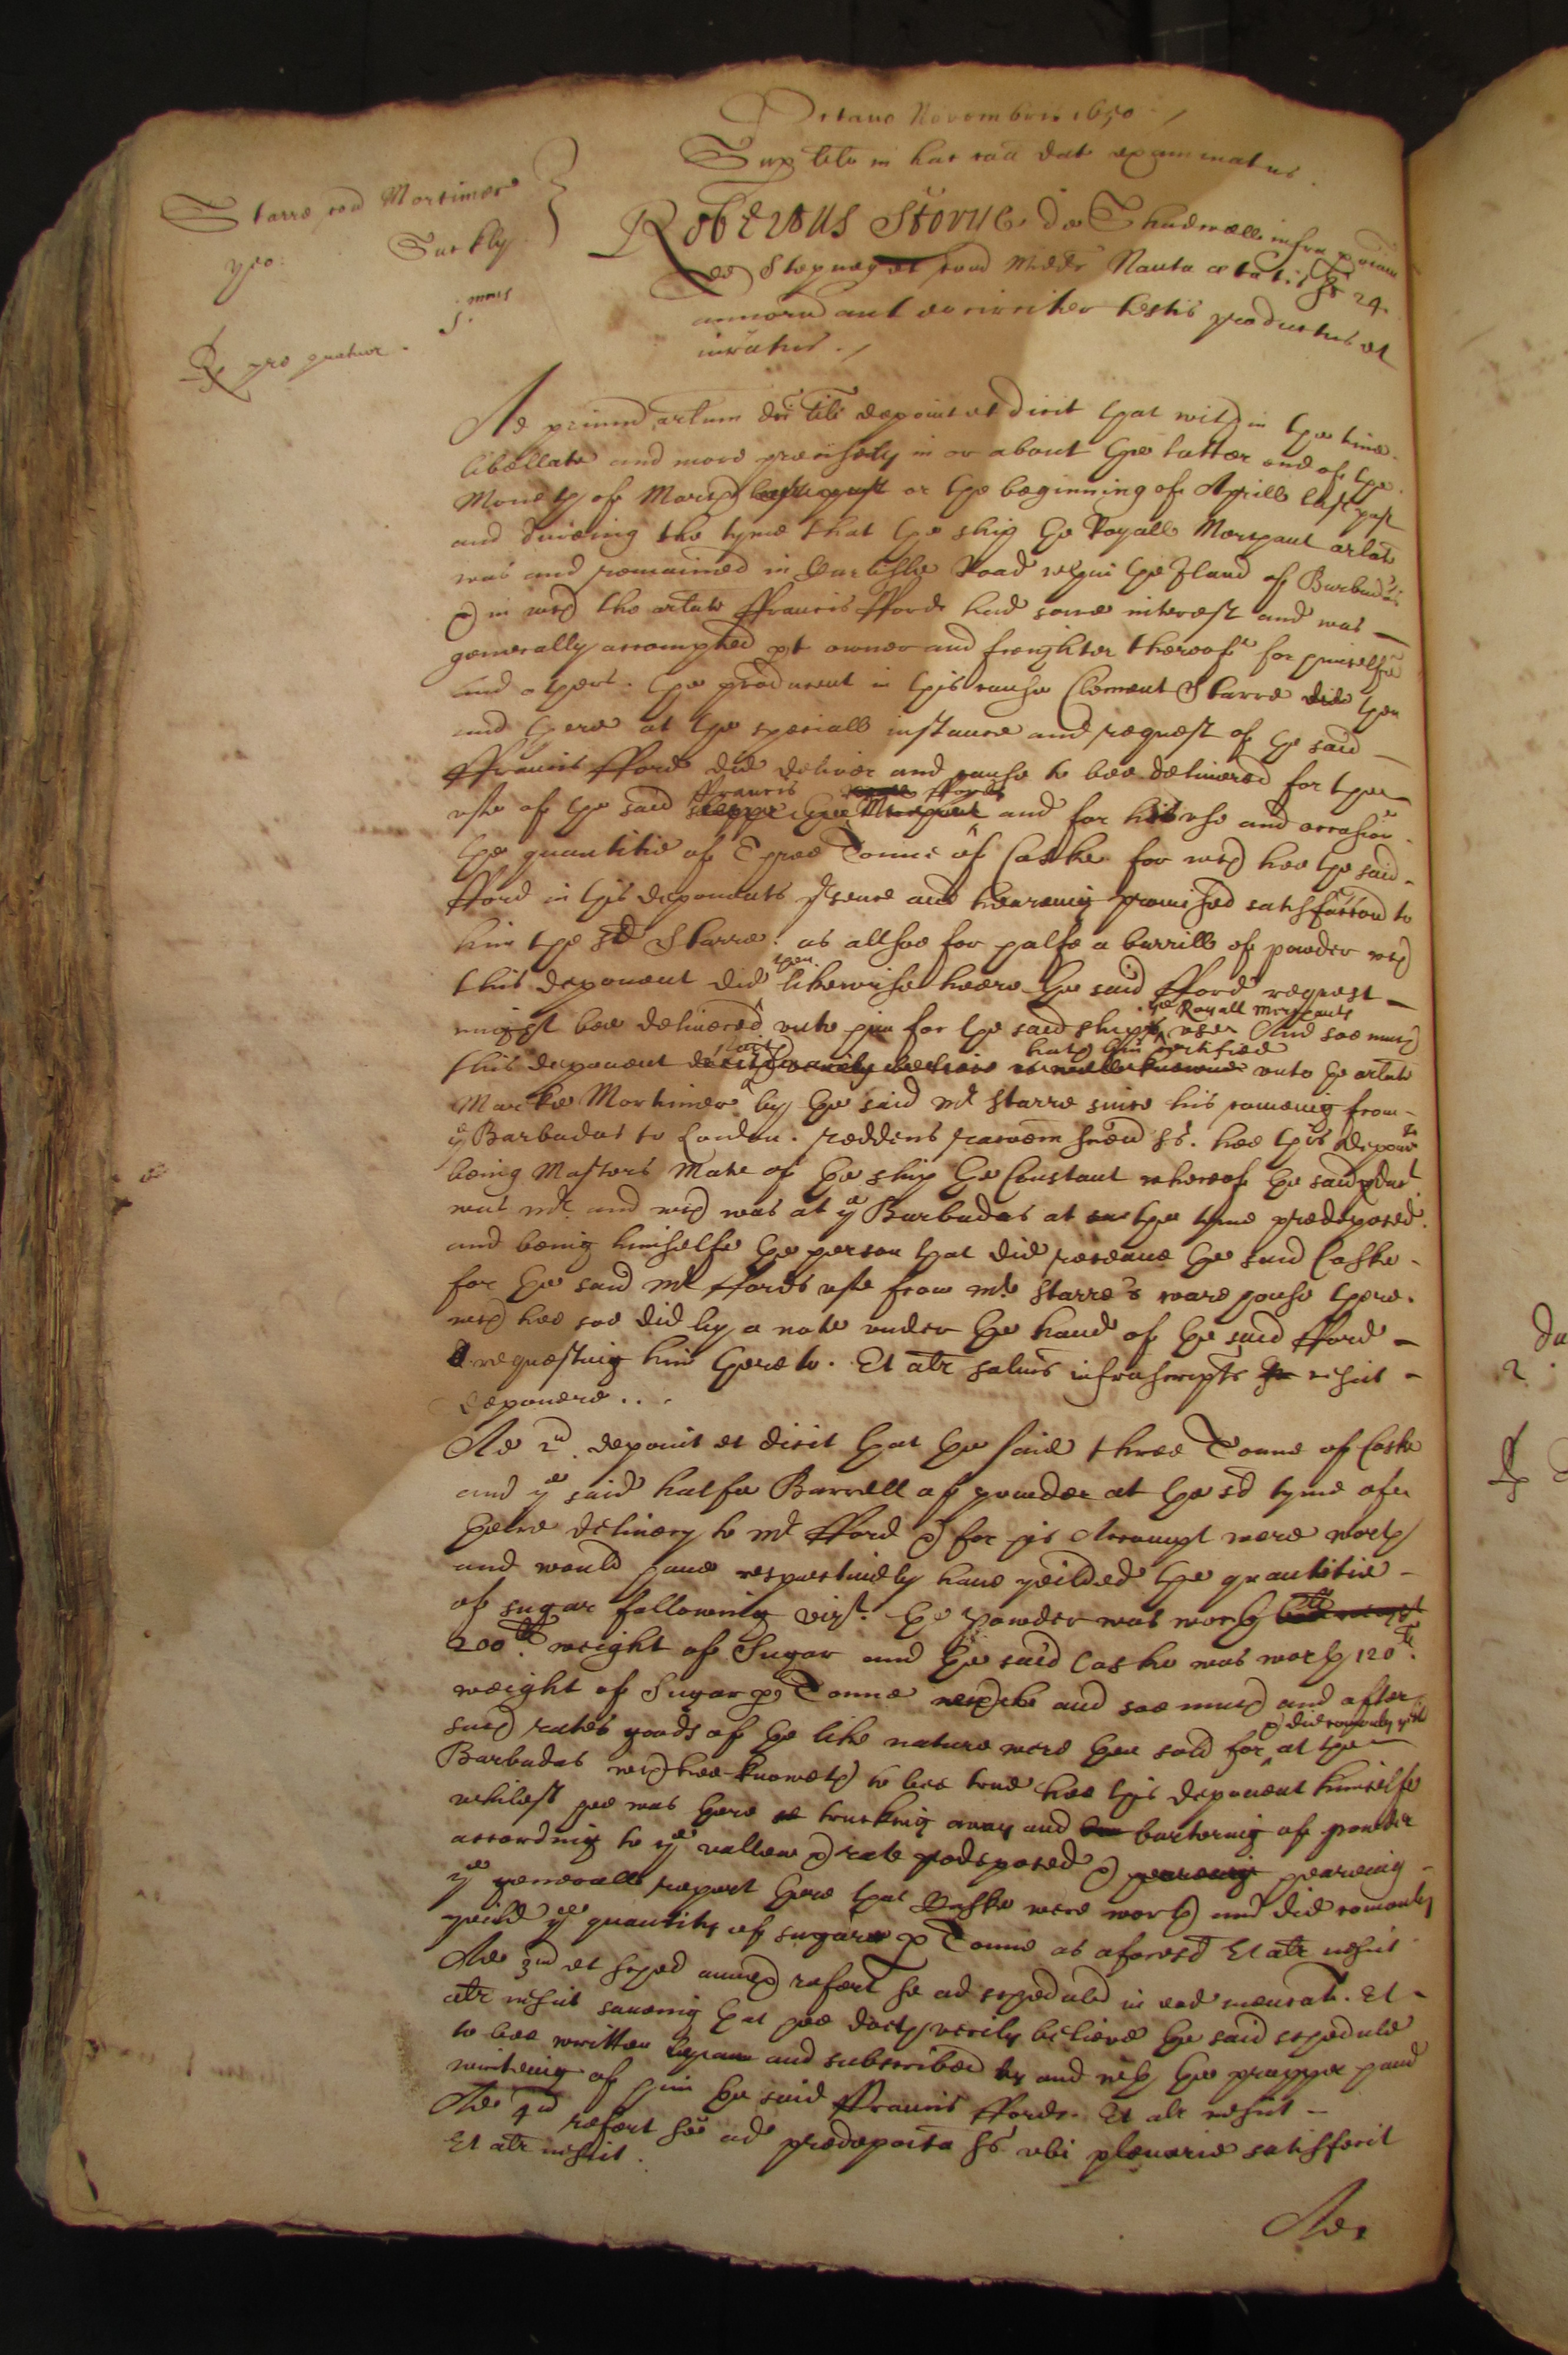 Octavo Novembris 1650
Sup libto in hac cau dat examinatus
Starre con Mortimer
Suckly
Robertus Storye de Shadwell infra pochiam
de Stepney et com Midds Nauta ætatis 24
annoru aut eo circiter testis productus et
iuratus.
j.mus
Ad primu arlum dci libli deponit et dicit that within the time
libellate and more precisely in or about the latter end of the
Moneth of March last past or the beginning of Aprill last past
and dureing the tyme that the ship the Royall Merchant arlate
was and remained in Carlisle Road within the Iland of Barbadas
& in wch the arlate Ffrancis Ffords had some interest and was
generally accompted pt owner and freighter thereof for himselfe
and others. the producent in this cause Clement Starre did then
and there at the speciall instance and request of the said
Ffrancis Fford did deliver and cause to bee delivered for the
Ffrancis Ffords
vse of the said shippe the Merchant and for his vse and occasion
the quantitie of Three Tonne of Caske for wch hee the said
Fford in this deponents psence and heareing promised satisfaccon to
him the sd Starre: as allsoe for halfe a barrill of powder wch
then
this deponent did likewise heare the said Fford request
the Royall Merchants
might bee delivered vnto him for the said shipps vse. And soe much
hath bin certified
this deponent vnto the arlate
Marke Mortimer by the said Mr Starre since his comeing from
ye Barbadas to London. reddens caem scien sue. hee this depont
being Masters Mate of the ship the Constant whereof the said
was Mr. and wch was at ye Barbadas at the tyme predeposed.
and being himselfe the person that did receave the said Caske
for the said Mr Ffords vse from Mr Starre's ware house there.
wch hee soe did by a note vnder the hand of the said Fford
requesting him thereto. Et alr salvis infrascriptis nescit
deponere...
Ad 2um deponit et dicit that the said three Tonne of Caske
and ye said halfe Barrell of powder at the sd tyme of
theire delivery to Mr Fford & for his Accompt were worth
and would have respectively have yeilded the quantitie
of sugar following vizt. the powder was worth
200 lb weight of Sugar and the said Caske was worth 120 lb.
weight of Sugar p Tonne and soe much and after
such rates goods of the like nature were then sold for at the
& did comonly yeild
Barbadas wch hee knoweth to bee true hee this deponent himselfe
whilest hee was there trucking away and bartering of powder
according to ye vallew & rate predeposed & heareing
ye generall report there that Caske were worth and did comonly
yeild ye quantity of sugar p Tonne as aforesd Et alr nescit
Ad 3um et sched annex refert se ad schedulam in eod mencat. Et
alr nescit saveing that hee doth verily believe the said schedule
to bee written and subscribed by and with the propper hand
writeing of him the said Ffrancis Ffords. Et alr nescit
Ad 4um refert se ad predeposita sua vbi plenarie satisfecit
Et alr nescit.
Ad